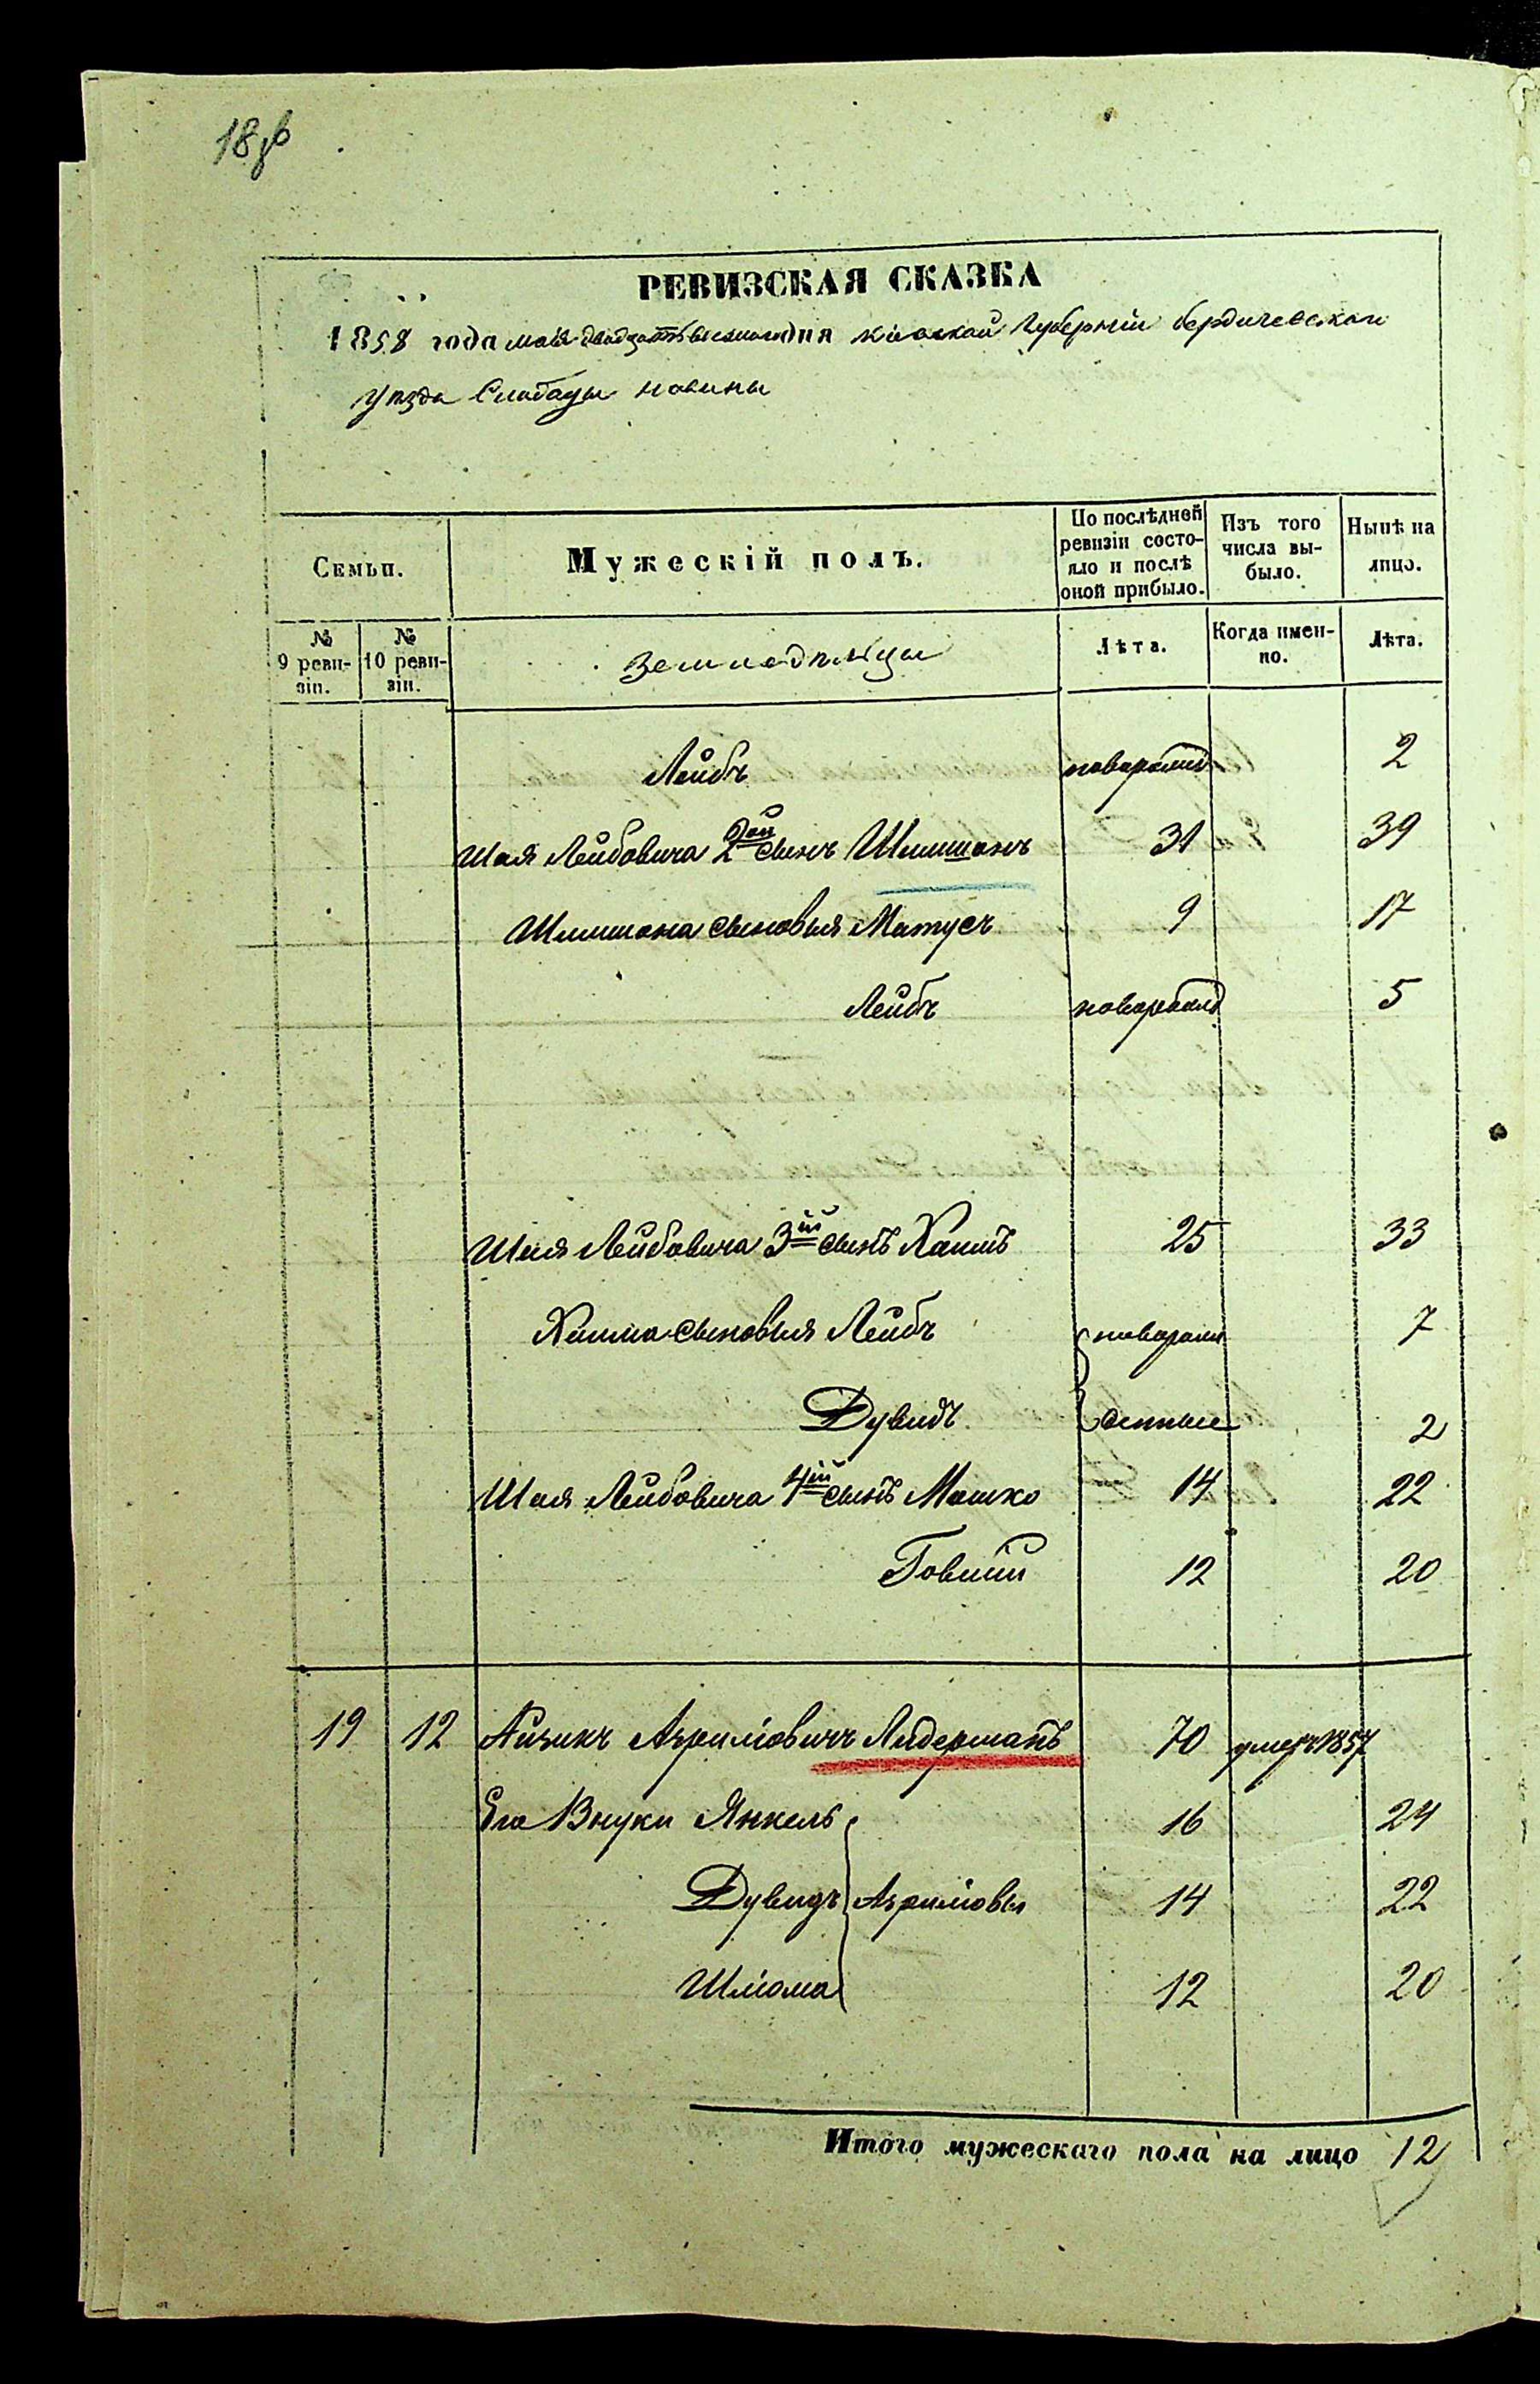 18об
РЕВИЗСКАЯ СКАЗКА
1858 года мая двадцать дня Кіевской Губерніи Бердичевскаго
уѣзда Слободы Новины
Семьи.
Мужескій полъ.
По послѣдней ревизіи состояло и послѣ оной прибыло.
Изъ того числа выбыло.
Нынѣ на лицо.
№ 9 ревизіи.
№ 10 ревизіи.
Земледѣльцы
Лѣта.
Когда именно.
Лѣта.
Лейбъ новорожд 2
Шая Лейбовича 2ой сынъ Шимшонъ 31 39
Шимшона сыновья Матусъ 9 17
Лейбъ новорожд 5
Шая Лейбовича 3ій сынъ Хаимъ 25 33
Хаима сыновья Лейбъ новорож 7
Дувидъ денные 2
Шая Лейбовича 4ій сынъ Мошко 14 22
12 20
19 12 Айзикъ Лидерманъ 70 умеръ 1857
Его Внуки Янкель 16 24
Дувидъ 14 22
Шлиома 12 20
Итого мужескаго пола на лицо 12